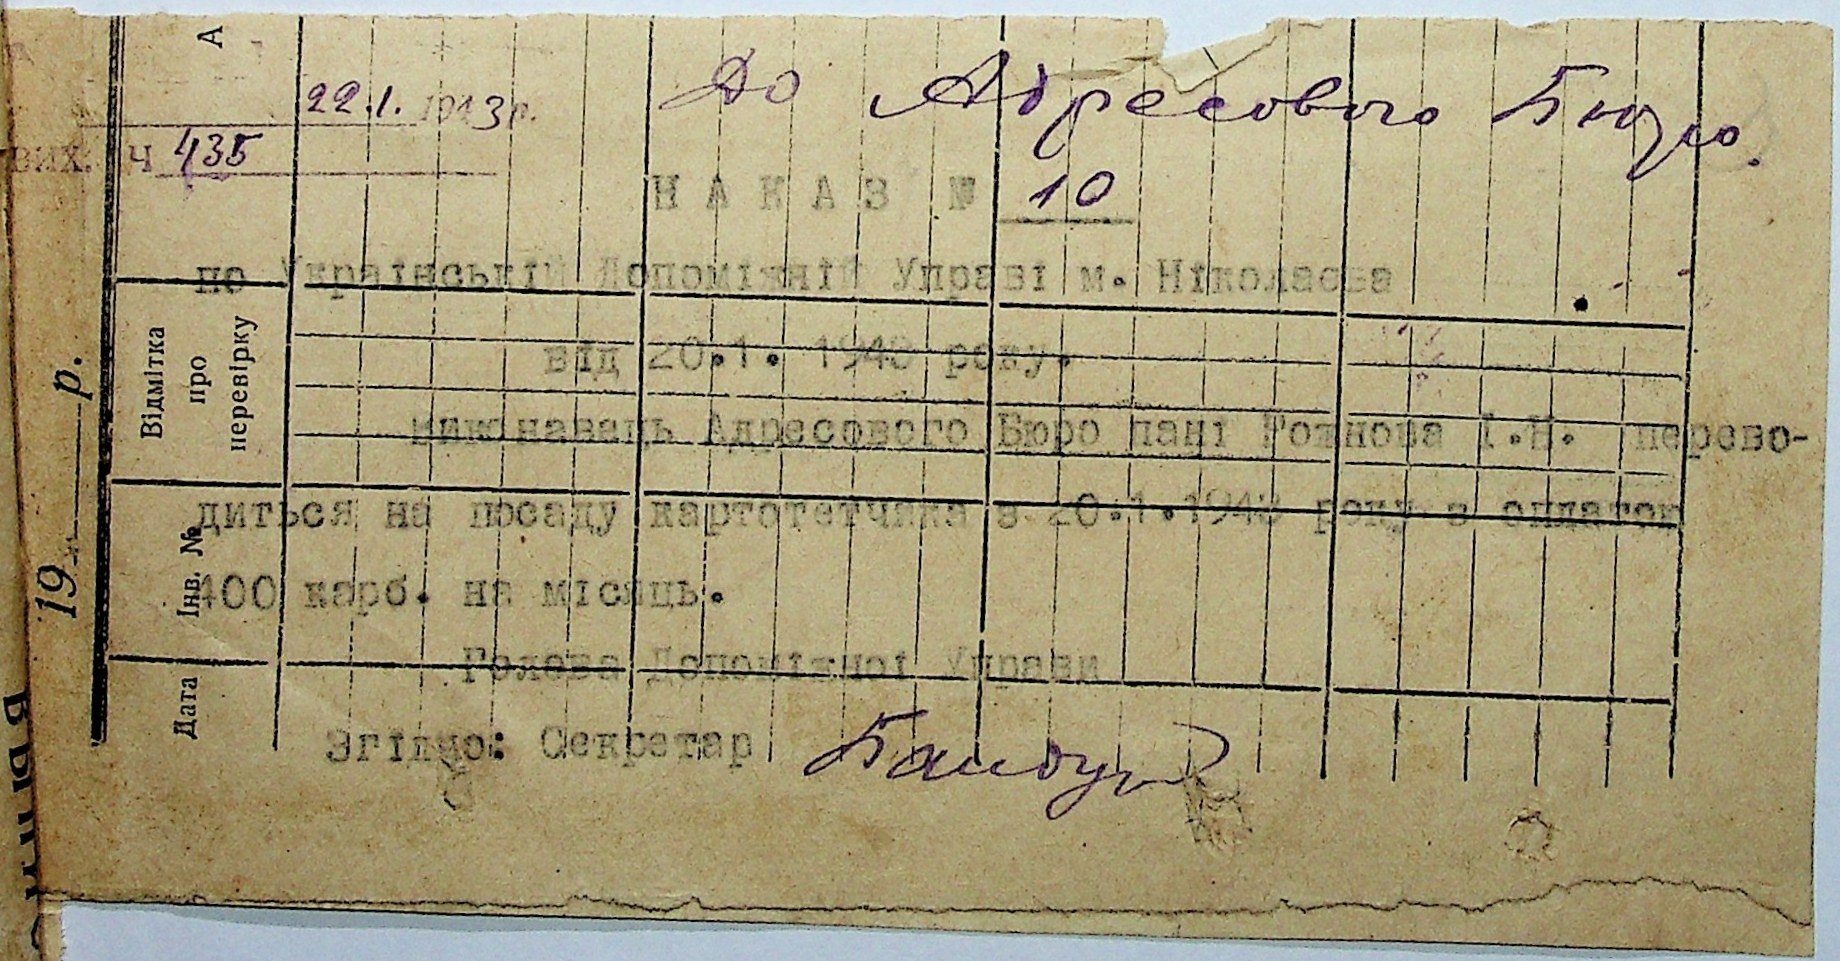 А
22.1. 1943 р.
До Адресового Бюро.
вих. ч 435
НАКАЗ № 10
по Українській Допоміжній Управі м. Ніколаєва
від 20.1. 1943 року.
Виконавець Адресового Бюро пані Рожнова І.Н. перево-
диться на посаду картотетчика з 20.1.1943 року з оплатою
400 карб. на місяць.
Голова Допоміжної Управи
Згідно: Секретар
Відмітка
про
перевірку
Інв. №
Дата
19 р.